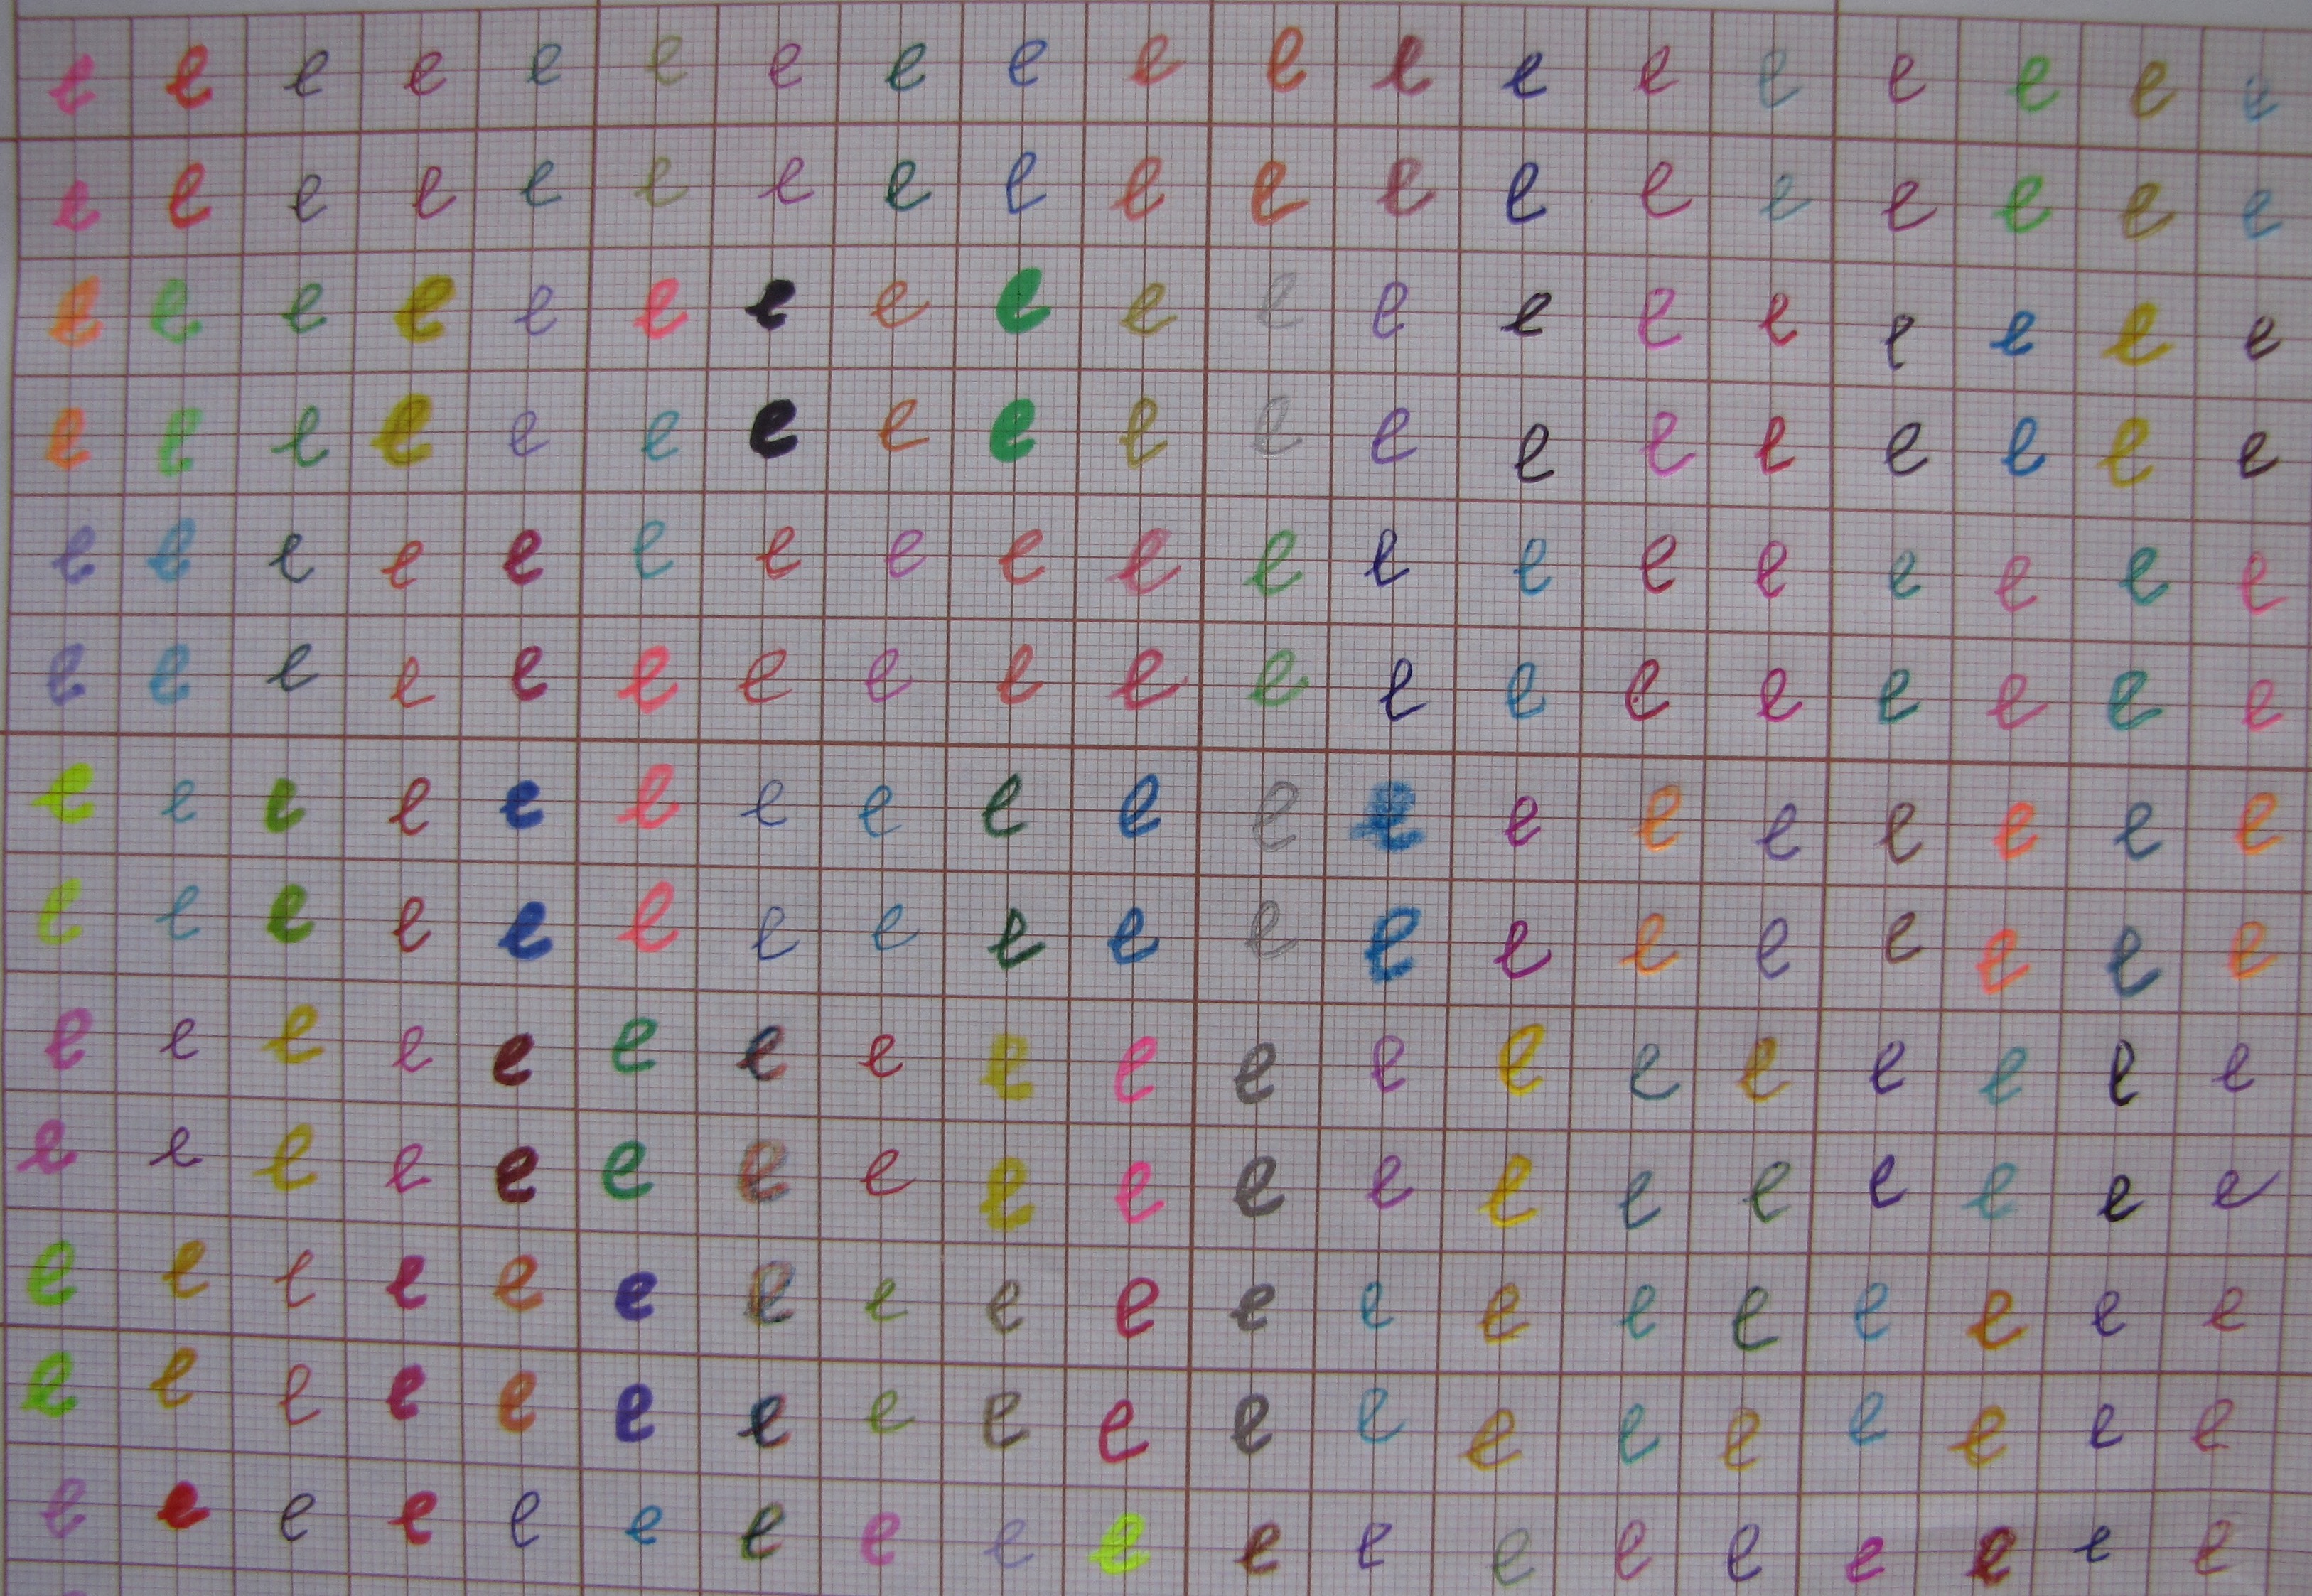 e e e e e e e e e e e e e e e e e e e
e e e e e e e e e e e e e e e e e e e
e e e e e e e e e e e e e e e e e e e
e e e e e e e e e e e e e e e e e e e
e e e e e e e e e e e e e e e e e e e
e e e e e e e e e e e e e e e e e e e
e e e e e e e e e e e e e e e e e e e
e e e e e e e e e e e e e e e e e e e
e e e e e e e e e e e e e e e e e e e
e e e e e e e e e e e e e e e e e e e
e e e e e e e e e e e e e e e e e e e
e e e e e e e e e e e e e e e e e e e
e e e e e e e e e e e e e e e e e e e